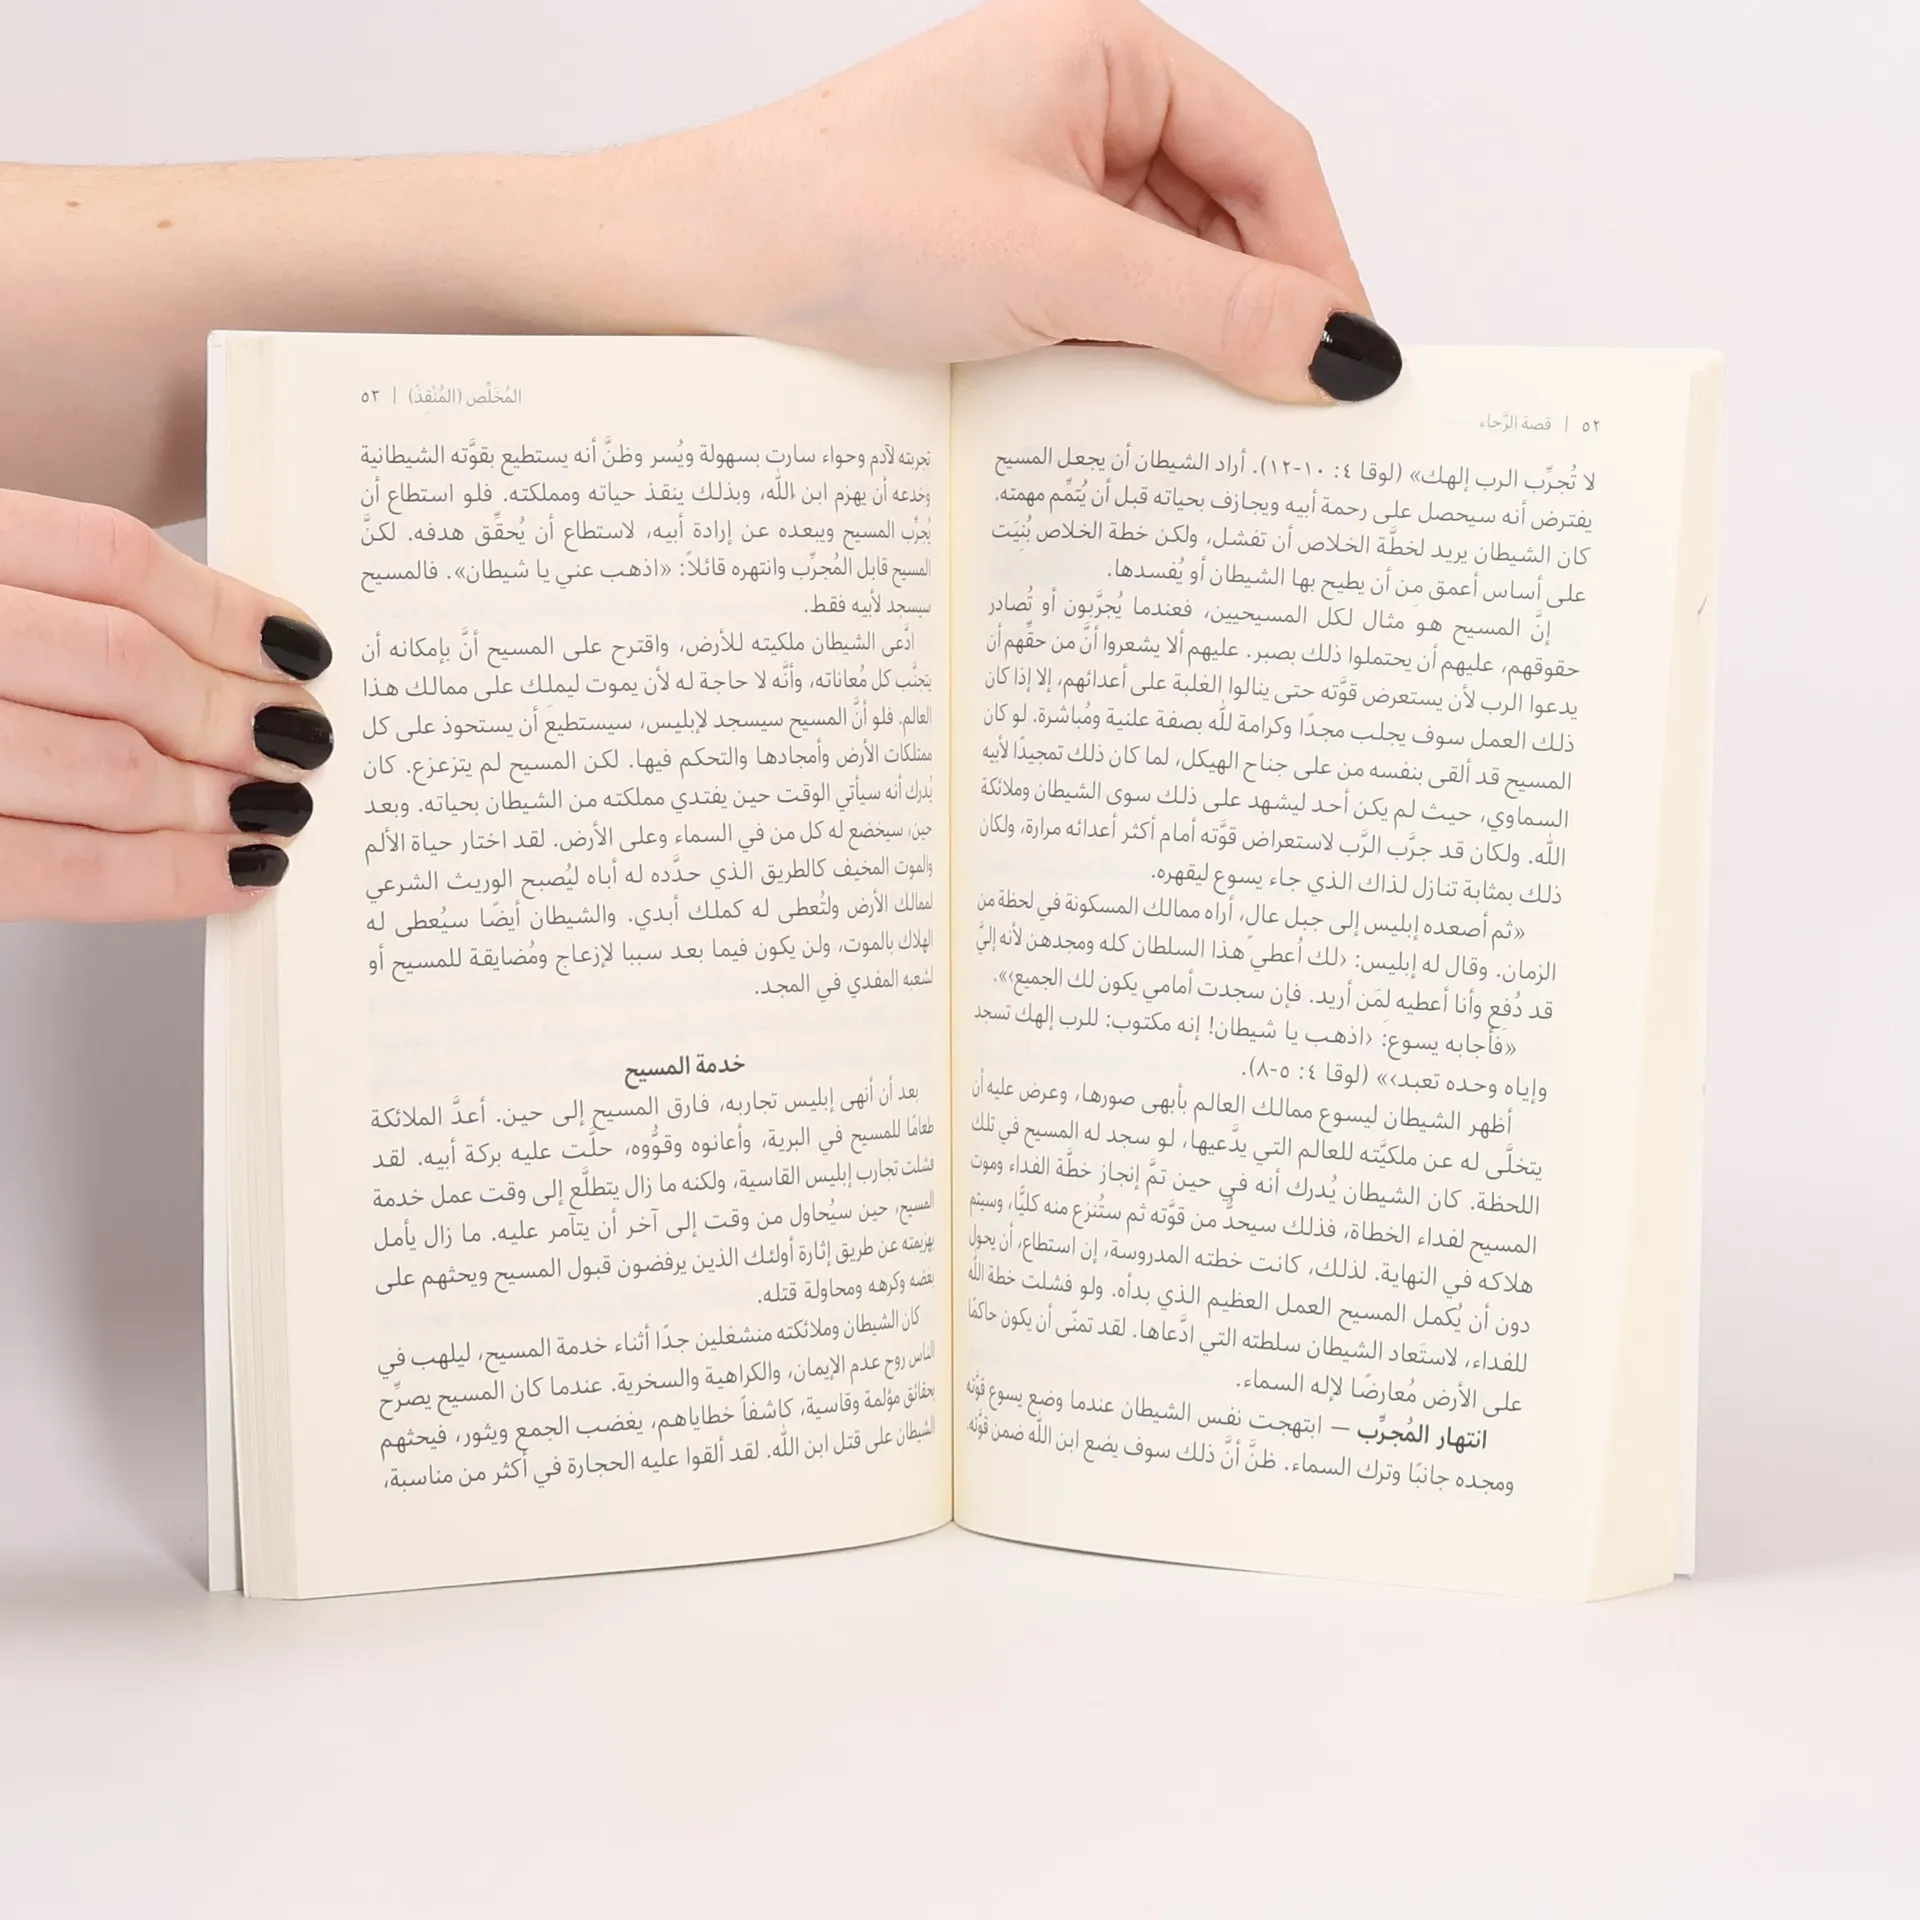 ٥٢ | قصة الرَّجاء
لا تُجرِّب الرب إلهك» (لوقا ٤: ١٠-١٢). أراد الشيطان أن يجعل المسيح
يفترض أنه سيحصل على رحمة أبيه ويجازف بحياته قبل أن يُتمِّم مهمته.
كان الشيطان يريد لخطَّة الخلاص أن تفشل، ولكن خطة الخلاص بُنِيَت
على أساس أعمق مِن أن يطيح بها الشيطان أو يُفسدها.
إنَّ المسيح هو مثال لكل المسيحيين، فعندما يُجرَّبون أو تُصادر
حقوقهم، عليهم أن يحتملوا ذلك بصبر. عليهم ألا يشعروا أنَّ من حقِّهم أن
يدعوا الرب لأن يستعرض قوَّته حتى ينالوا الغلبة على أعدائهم، إلا إذا كان
ذلك العمل سوف يجلب مجدًا وكرامة لله بصفة علنية ومُباشرة. لو كان
المسيح قد ألقى بنفسه من على جناح الهيكل، لما كان ذلك تمجيدًا لأبيه
السماوي، حيث لم يكن أحد ليشهد على ذلك سوى الشيطان وملائكة
الله. ولكان قد جرَّب الرَّب لاستعراض قوَّته أمام أكثر أعدائه مرارة، ولكان
ذلك بمثابة تنازل لذاك الذي جاء يسوع ليقهره.
«ثم أصعده إبليس إلى جبل عالٍ، أراه ممالك المسكونة في لحظة من
الزمان. وقال له إبليس: ‹لك اُعطي هذا السلطان كله ومجدهن لأنه إليَّ
قد دُفِع وأنا أعطيه لِمَن أريد. فإن سجدت أمامي يكون لك الجميع›».
«فأجابه يسوع: ‹اذهب يا شيطان! إنه مكتوب: للرب إلهك تسجد
وإياه وحده تعبد›» (لوقا ٤: ٥-٨).
أظهر الشيطان ليسوع ممالك العالم بأبهى صورها، وعرض عليه أن
يتخلَّى له عن ملكيَّته للعالم التي يدَّعيها، لو سجد له المسيح في تلك
اللحظة. كان الشيطان يُدرك أنه في حين تمَّ إنجاز خطَّة الفداء وموت
المسيح لفداء الخطاة، فذلك سيحدُّ من قوَّته ثم ستُنزع منه كليًّا، وسيتم
هلاكه في النهاية. لذلك، كانت خطته المدروسة، إن استطاع، أن يحول
دون أن يُكمل المسيح العمل العظيم الذي بدأه. ولو فشلت خطة الله
للفداء، لاستَعاد الشيطان سلطته التي ادَّعاها. لقد تمنّى أن يكون حاكمًا
على الأرض مُعارضًا لإله السماء.
انتهار المُجرِّب — ابتهجت نفس الشيطان عندما وضع يسوع قوَّته
ومجده جانبًا وترك السماء. ظنَّ أنَّ ذلك سوف يضع ابن الله ضمن قوَّته.
المُخَلِّص (المُنْقِذ) | ٥٣
تجربته لآدم وحواء سارت بسهولة ويُسر وظنَّ أنه يستطيع بقوَّته الشيطانية
وخدعه أن يهزم ابن الله، وبذلك ينقذ حياته ومملكته. فلو استطاع أن
يُجرِّب المسيح ويبعده عن إرادة أبيه، لاستطاع أن يُحقِّق هدفه. لكنَّ
المسيح قابل المُجرِّب وانتهره قائلاً: «اذهب عني يا شيطان». فالمسيح
سيسجد لأبيه فقط.
ادَّعى الشيطان ملكيته للأرض، واقترح على المسيح أنَّ بإمكانه أن
يتجنَّب كل مُعاناته، وأنَّه لا حاجة له لأن يموت ليملك على ممالك هذا
العالم. فلو أنَّ المسيح سيسجد لإبليس، سيستطيع أن يستحوذ على كل
ممتلكات الأرض وأمجادها والتحكم فيها. لكن المسيح لم يتزعزع. كان
يُدرك أنه سيأتي الوقت حين يفتدي مملكته من الشيطان بحياته. وبعد
حين، سيخضع له كل من في السماء وعلى الأرض. لقد اختار حياة الألم
والموت المخيف كالطريق الذي حدَّده له أباه ليُصبح الوريث الشرعي
لممالك الأرض ولتُعطى له كملك أبدي. والشيطان أيضًا سيُعطى له
الهلاك بالموت، ولن يكون فيما بعد سببا لإزعاج ومُضايقة للمسيح أو
لشعبه المفدي في المجد.
خدمة المسيح
بعد أن أنهى إبليس تجاربه، فارق المسيح إلى حين. أعدَّ الملائكة
طعامًا للمسيح في البرية، وأعانوه وقوُّوه، حلَّت عليه بركة أبيه. لقد
فشلت تجارب إبليس القاسية، ولكنه ما زال يتطلَّع إلى وقت عمل خدمة
المسيح، حين سيُحاول من وقت إلى آخر أن يتآمر عليه. ما زال يأمل
بهزيمته عن طريق إثارة أولئك الذين يرفضون قبول المسيح ويحثهم على
بغضه وكرهه ومحاولة قتله.
كان الشيطان وملائكته منشغلين جدًا أثناء خدمة المسيح، ليلهب في
الناس روح عدم الإيمان، والكراهية والسخرية. عندما كان المسيح يصرِّح
بحقائق مؤلمة وقاسية، كاشفاً خطاياهم، يغضب الجمع ويثور، فيحثهم
الشيطان على قتل ابن الله. لقد ألقوا عليه الحجارة في أكثر من مناسبة،